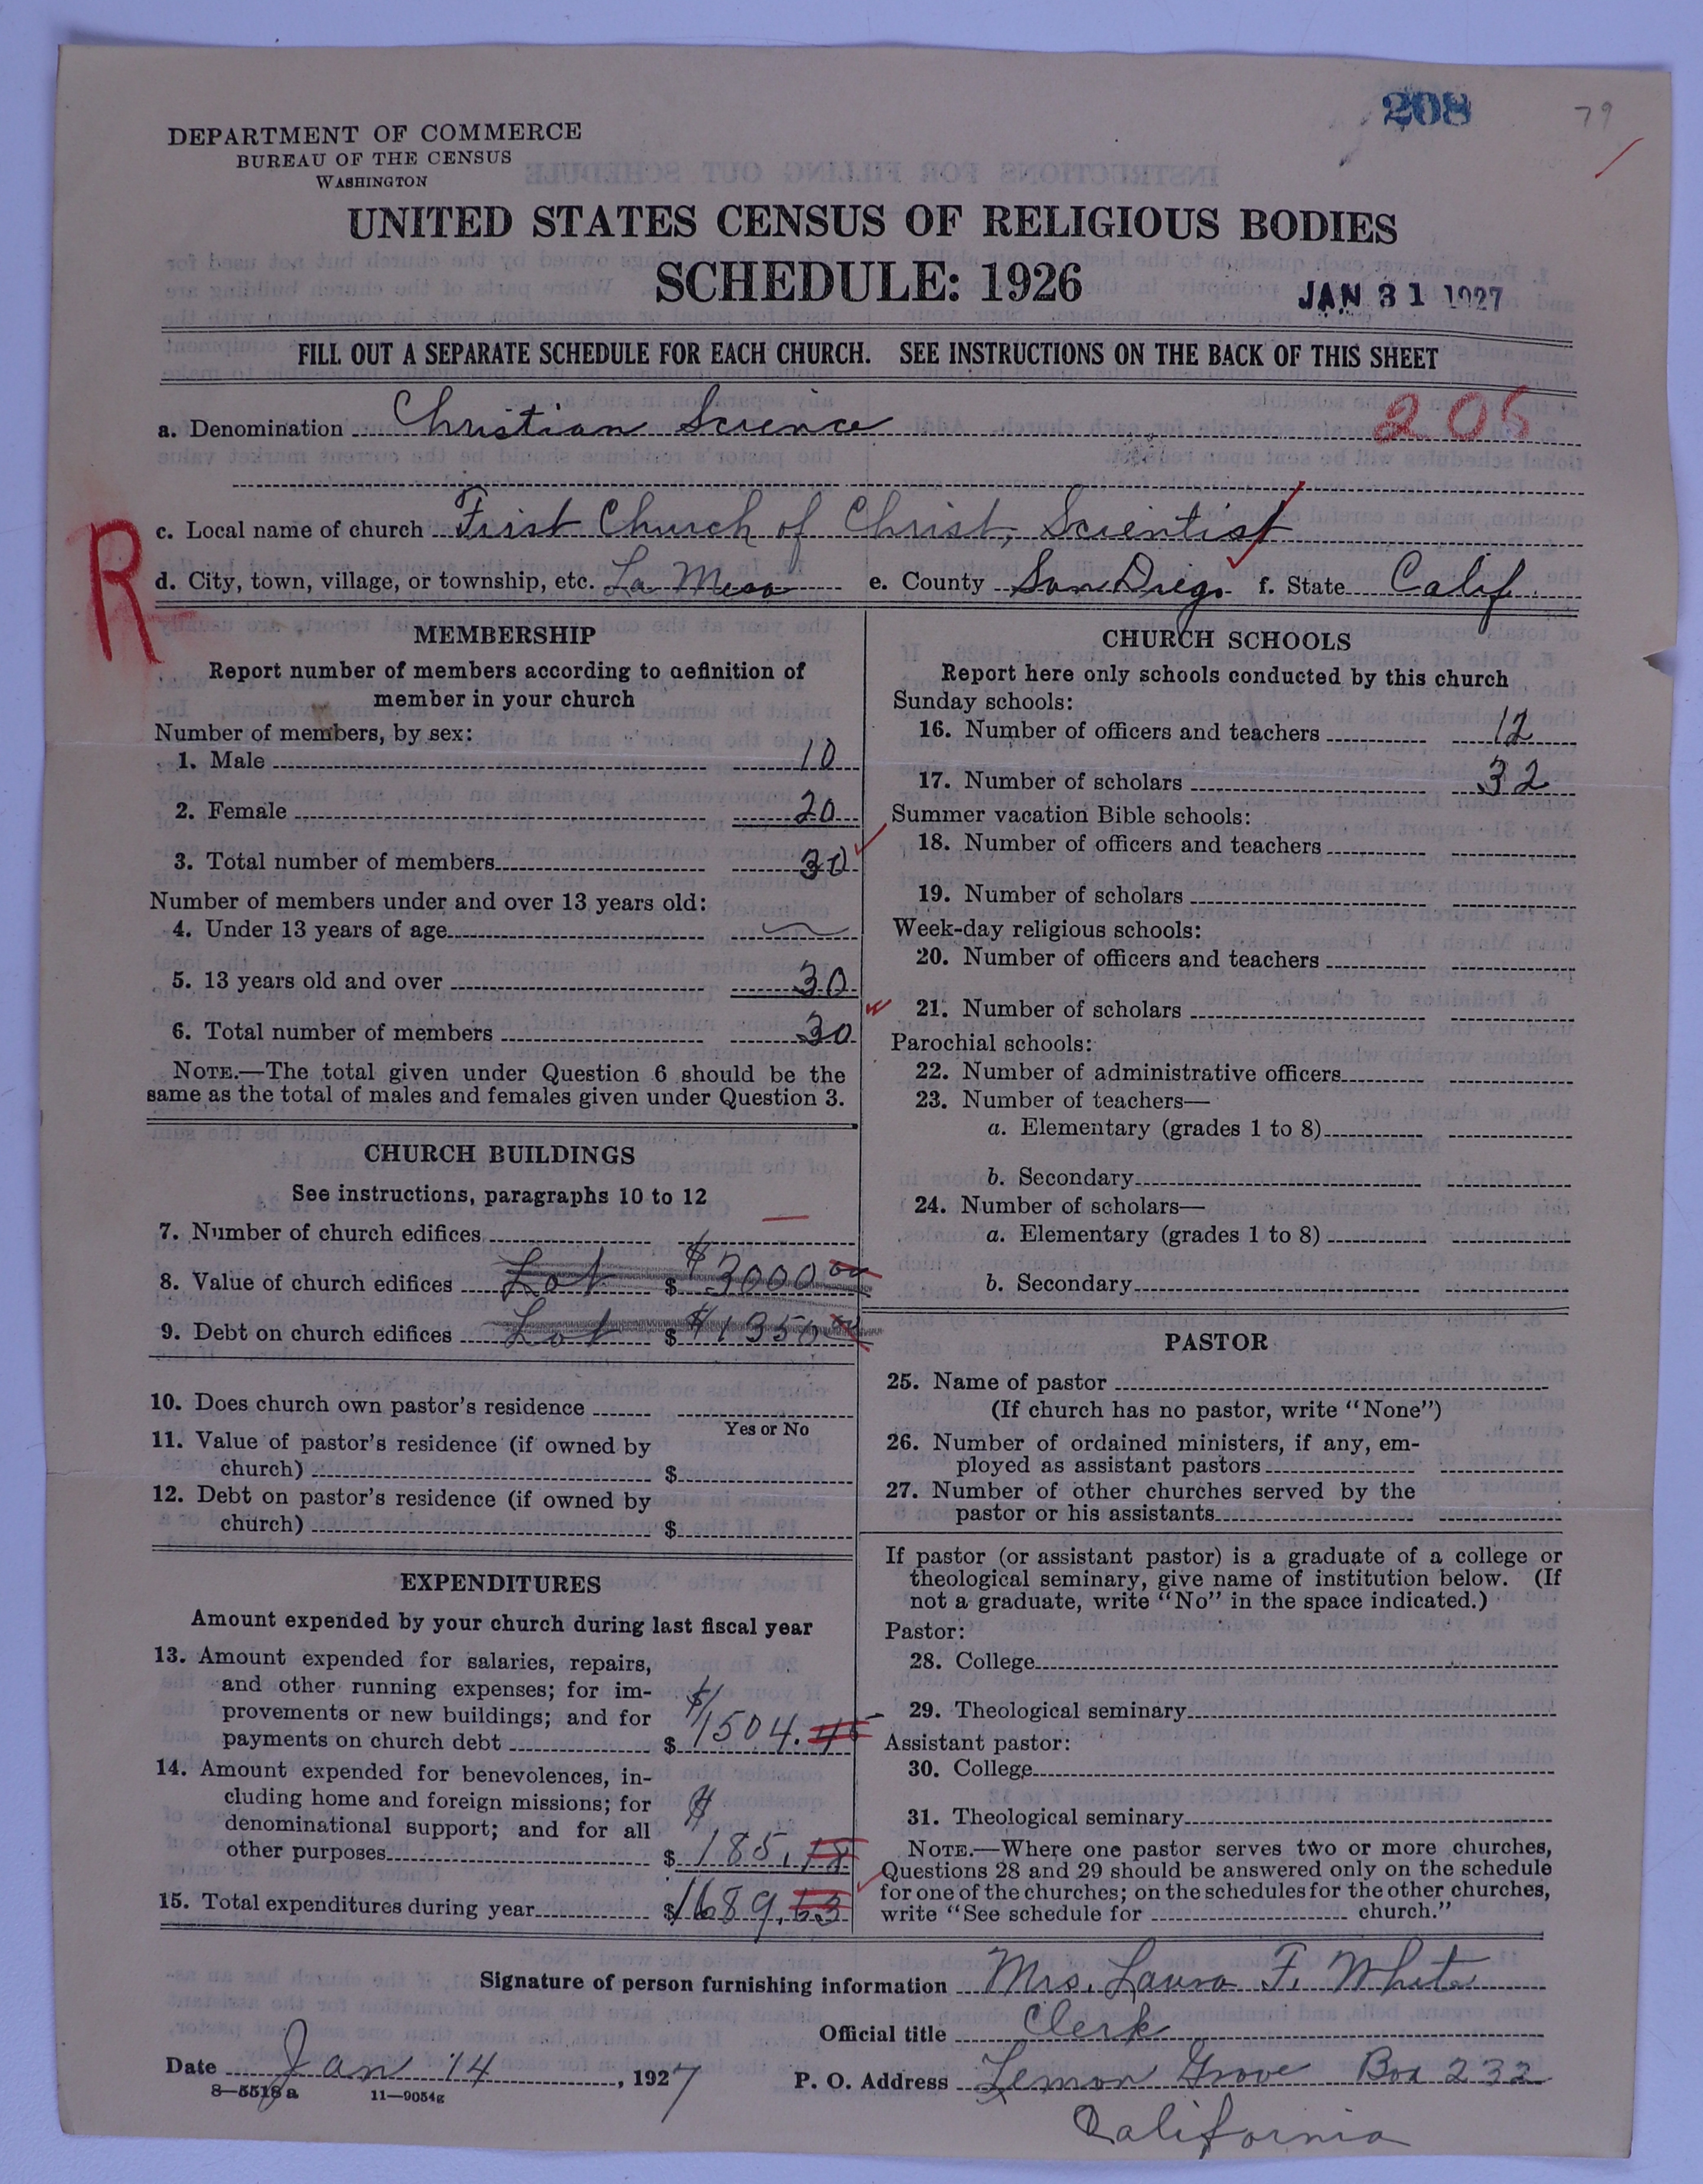 208
79
DEPARTMENT OF COMMERCE
BUREAU OF THE CENSUS
WASHINGTON
UNITED STATES CENSUS OF RELIGIOUS BODIES
SCHEDULE: 1926
JAN 31 1927
FILL OUT A SEPARATE SCHEDULE FOR EACH CHURCH. SEE INSTRUCTIONS ON THE BACK OF THIS SHEET
a. Denomination Christian Science 205
c. Local name of church First Church of Christ, Scientist
R
d. City, town, village, or township, etc. La Mesa e. County San Diego f. State Calif.
MEMBERSHIP
Report number of members according to definition of
member in your church
Number of members, by sex:
1. Male 10
2. Female 20
3. Total number of members 30
Number of members under and over 13 years old:
4. Under 13 years of age
5. 13 years old and over 30
6. Total number of members 30
NOTE.—The total given under Question 6 should be the
same as the total of males and females given under Question 3.
CHURCH BUILDINGS
See instructions, paragraphs 10 to 12
7. Number of church edifices —
8. Value of church edifices Lot $ $3000 00
9. Debt on church edifices Lot $ $1350 00
10. Does church own pastor's residence
Yes or No
11. Value of pastor's residence (if owned by
church) $
12. Debt on pastor's residence (if owned by
church) $
EXPENDITURES
Amount expended by your church during last fiscal year
13. Amount expended for salaries, repairs,
and other running expenses; for im-
provements or new buildings; and for
payments on church debt $ $1504.45
14. Amount expended for benevolences, in-
cluding home and foreign missions; for
denominational support; and for all
other purposes $ $185.18
15. Total expenditures during year $1689.63
CHURCH SCHOOLS
Report here only schools conducted by this church
Sunday schools:
16. Number of officers and teachers 12
17. Number of scholars 32
Summer vacation Bible schools:
18. Number of officers and teachers
19. Number of scholars
Week-day religious schools:
20. Number of officers and teachers
21. Number of scholars
Parochial schools:
22. Number of administrative officers
23. Number of teachers—
a. Elementary (grades 1 to 8)
b. Secondary
24. Number of scholars—
a. Elementary (grades 1 to 8)
b. Secondary
PASTOR
25. Name of pastor
(If church has no pastor, write "None")
26. Number of ordained ministers, if any, em-
ployed as assistant pastors
27. Number of other churches served by the
pastor or his assistants
If pastor (or assistant pastor) is a graduate of a college or
theological seminary, give name of institution below. (If
not a graduate, write "No" in the space indicated.)
Pastor:
28. College
29. Theological seminary
Assistant pastor:
30. College
31. Theological seminary
NOTE.—Where one pastor serves two or more churches,
Questions 28 and 29 should be answered only on the schedule
for one of the churches; on the schedules for the other churches,
write "See schedule for church."
Signature of person furnishing information Mrs. Laura F. White
Official title Clerk
Date Jan 14, 1927
P. O. Address Lemon Grove Box 232
California
8—5518a 11—9054g